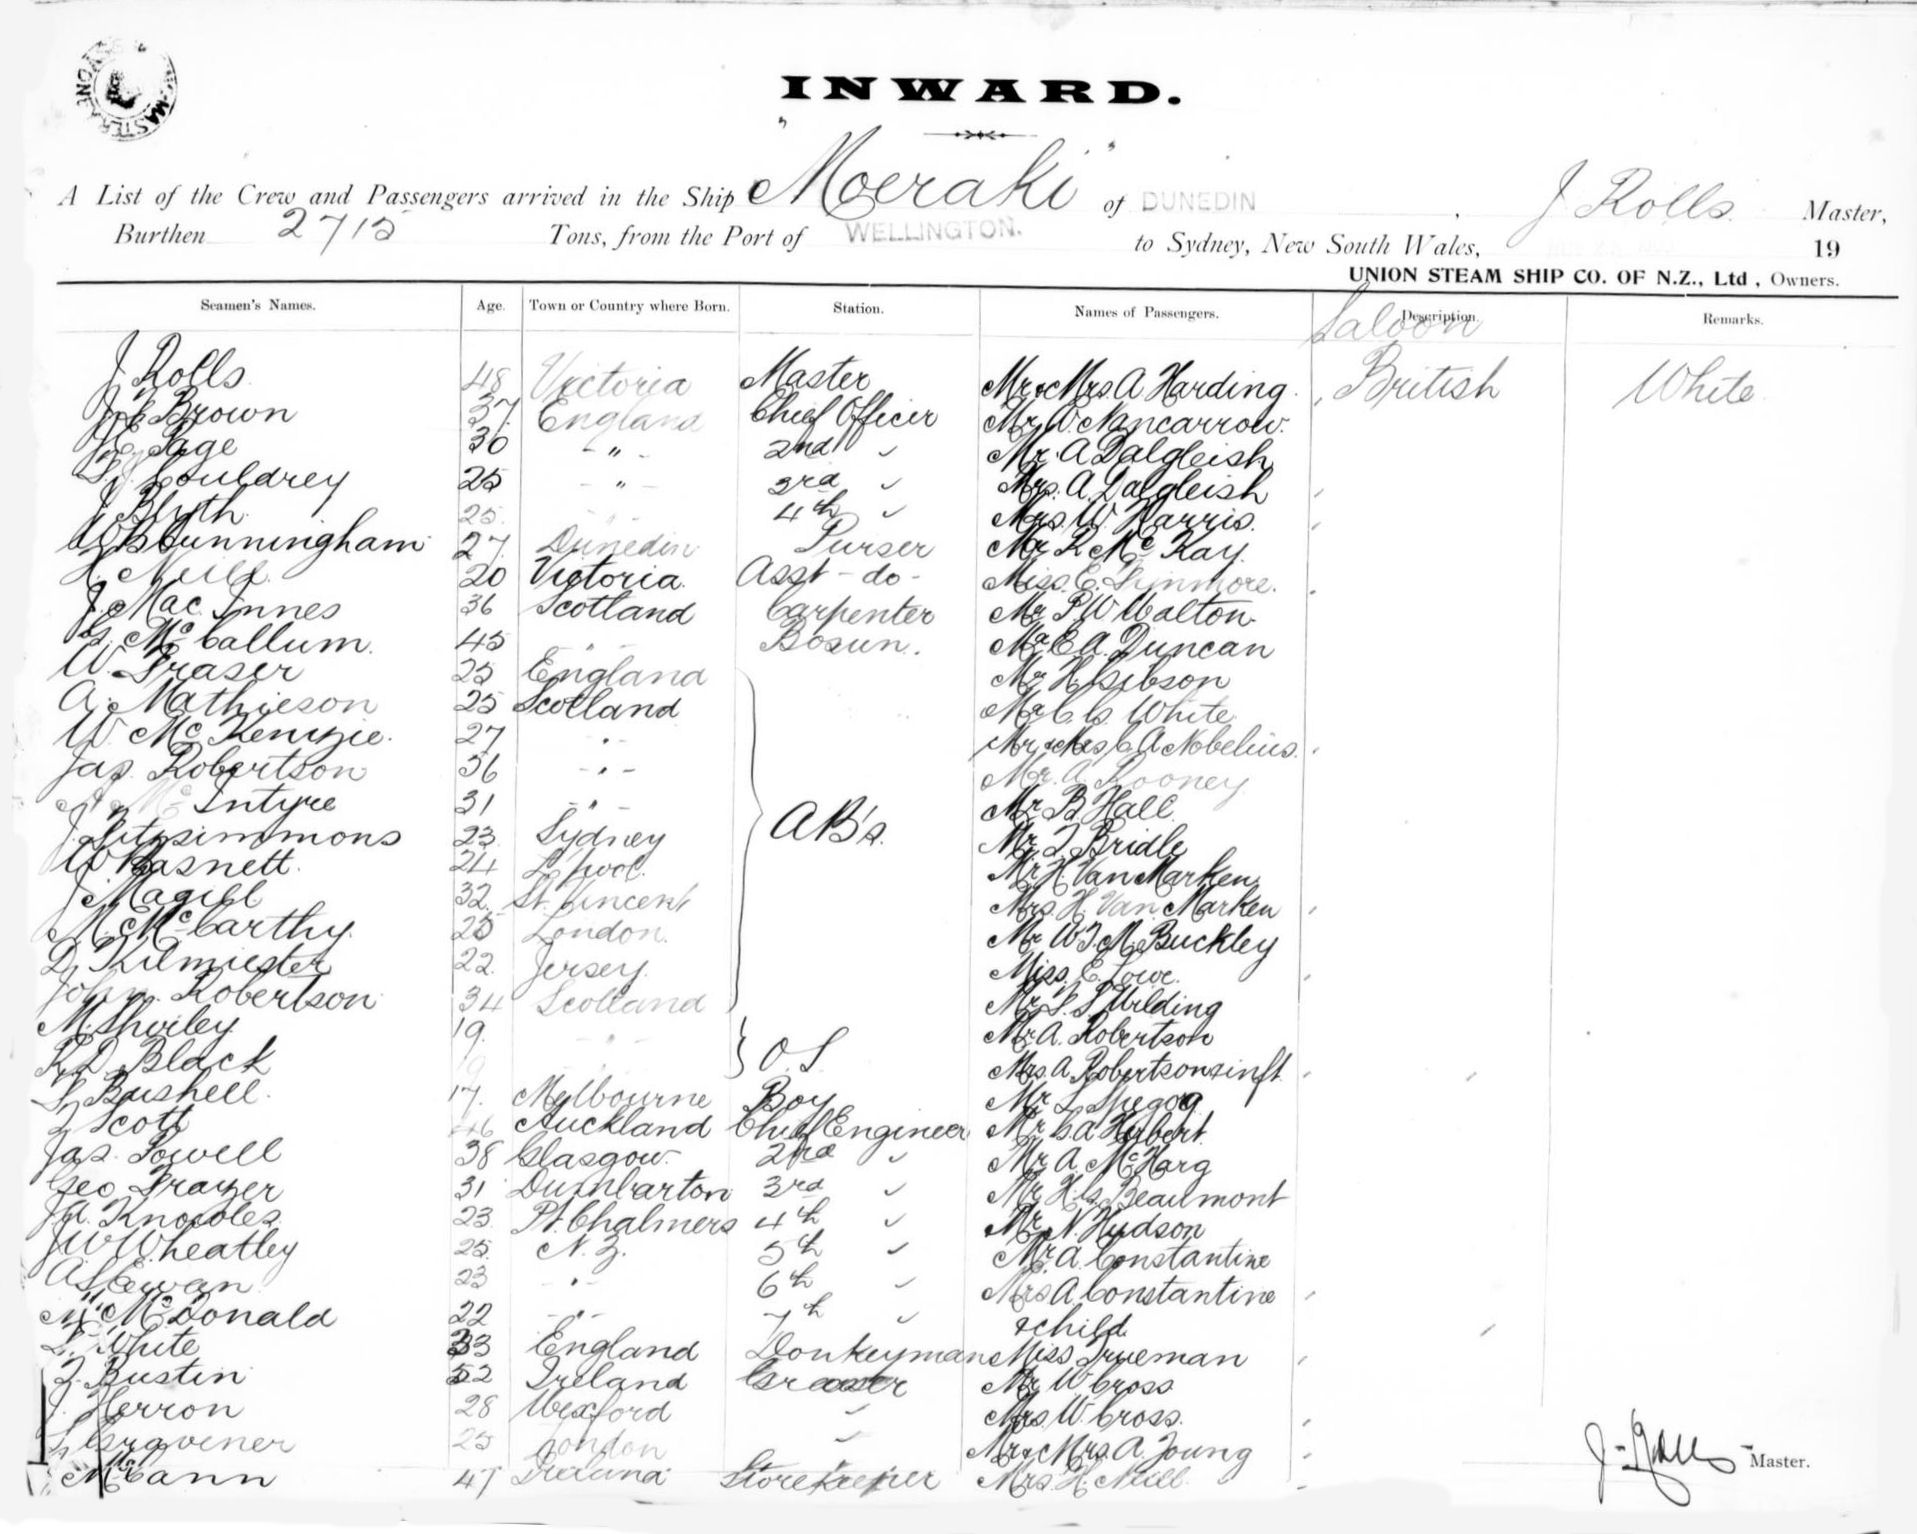 INWARD.
A List of the Crew and Passengers arrived in the Ship "Moeraki" of DUNEDIN, J Rolls Master,
Burthen 2715 Tons, from the Port of WELLINGTON. to Sydney, New South Wales, 19
UNION STEAM SHIP CO. OF N.Z., Ltd, Owners.
Seamen's Names. Age. Town or Country where Born. Station. Names of Passengers. Description. Remarks.
Saloon
J Rolls 48 Victoria Master Mr & Mrs A Harding British White
Brown 37 England Chief Officer Mr W Nancarrow
Page 30 " 2nd " Mr A Dalgleish
Couldrey 25 " 3rd " Mrs A Dalgleish
J Blyth 25 4th " Mrs W Harris
W B Cunningham 27 Dunedin Purser Mr R McKay
Neill 20 Victoria Asst - do - Miss E
J. Mac Innes 36 Scotland Carpenter Mr P W Walton
McCallum 45 " Bosun. Mr E A Duncan
W. Fraser 25 England Mr H Gibson
A. Mathieson 25 Scotland Mr C G White
W McKenzie 27 " Mr & Mrs C A Nobelius
Jas Robertson 36 " Mr A Rooney
McIntyre 31 " Mr B Hall
J. Fitzsimmons 23 Sydney AB's. Mr T Bridle
W Basnett 24 L'pool Mr H Van Marken
J Magill 32 St Vincent Mrs H Van Marken
M. McCarthy 25 London Mr W T M Buckley
D Kilmister 22 Jersey Miss E Lowe
John Robertson 34 Scotland Mr S S
M. Shirley 19 " Mr A. Robertson
R D Black 19 O.S. Mrs A Robertson & inft
Bushell 17 Melbourne Boy Mr L
Scott 46 Auckland Chief Engineer Mr G A Herbert
Jas. Powell 38 Glasgow 2nd " Mr A McHarg
Geo Frazer 31 Dumbarton 3rd " Mr H G Beaumont
Knowles 23 Pt. Chalmers 4th " Mr N. Hudson
J W Wheatley 25 N.Z. 5th " Mr A Constantine
A S Ewan 23 " 6th " Mrs A Constantine
McDonald 22 " 7th " & child
White 33 England Donkeyman Miss Trueman
Bustin 52 Ireland Greaser Mr W Cross
J Herron 28 Wexford " Mrs W. Cross
Gravener 25 London " Mr & Mrs A. Young
McCann 47 Ireland Storekeeper Mrs H. Neill
J Rolls Master.